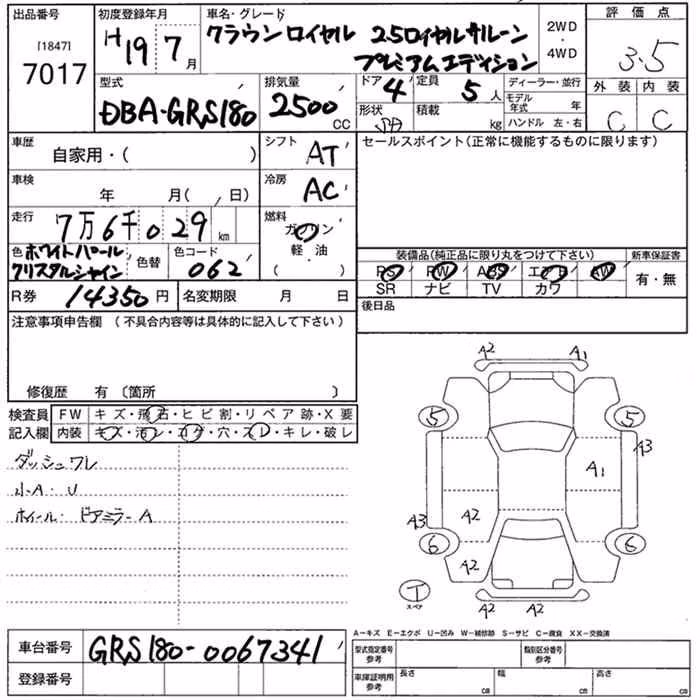 出品番号
[1847]
7017
初度登録年月
H19 7月
車名・グレード
クラウン ロイヤル 2.5ロイヤルサルーン
プレミアムエディション
2WD
・
4WD
評価点
3.5
型式
DBA-GRS180
排気量
2500 CC
ドア 4
定員 5人
形状
積載 kg
ディーラー・並行
モデル年式 年
ハンドル 左・右
外装 内装
C C
車歴
自家用・( )
シフト AT
セールスポイント(正常に機能するものに限ります)
車検
年 月( 日)
冷房 AC
走行
7万6千029 km
燃料
ガソリン
軽・油
( )
色 ホワイトパール
クリスタルシャイン
色替
色コード
062
装備品(純正品に限り丸をつけて下さい)
新車保証書
PS PW ABS エアB AW
SR ナビ TV カワ
有・無
R券 14350円
名変期限 月 日
後日品
注意事項申告欄 (不具合内容等は具体的に記入して下さい)
修復歴 有 〔箇所 〕
検査員
記入欄
FW キズ・飛石・ヒビ割・リペア跡・X要
内装 キズ・汚レ・コゲ・穴・スレ・キレ・破レ
ダッシュワレ
小A・U
ホイール・ドアミラーA
A2 A1
5 5
A3
A1
A3 A2
6 6
A2
T
スペア
A2 A2
車台番号 GRS180-0067341
登録番号
A−キズ E−エクボ U−凹み W−補修跡 S−サビ C−腐食 XX−交換済
型式指定番号
参考
類別区分番号
参考
車庫証明用
参考
長さ cm 幅 cm 高さ cm